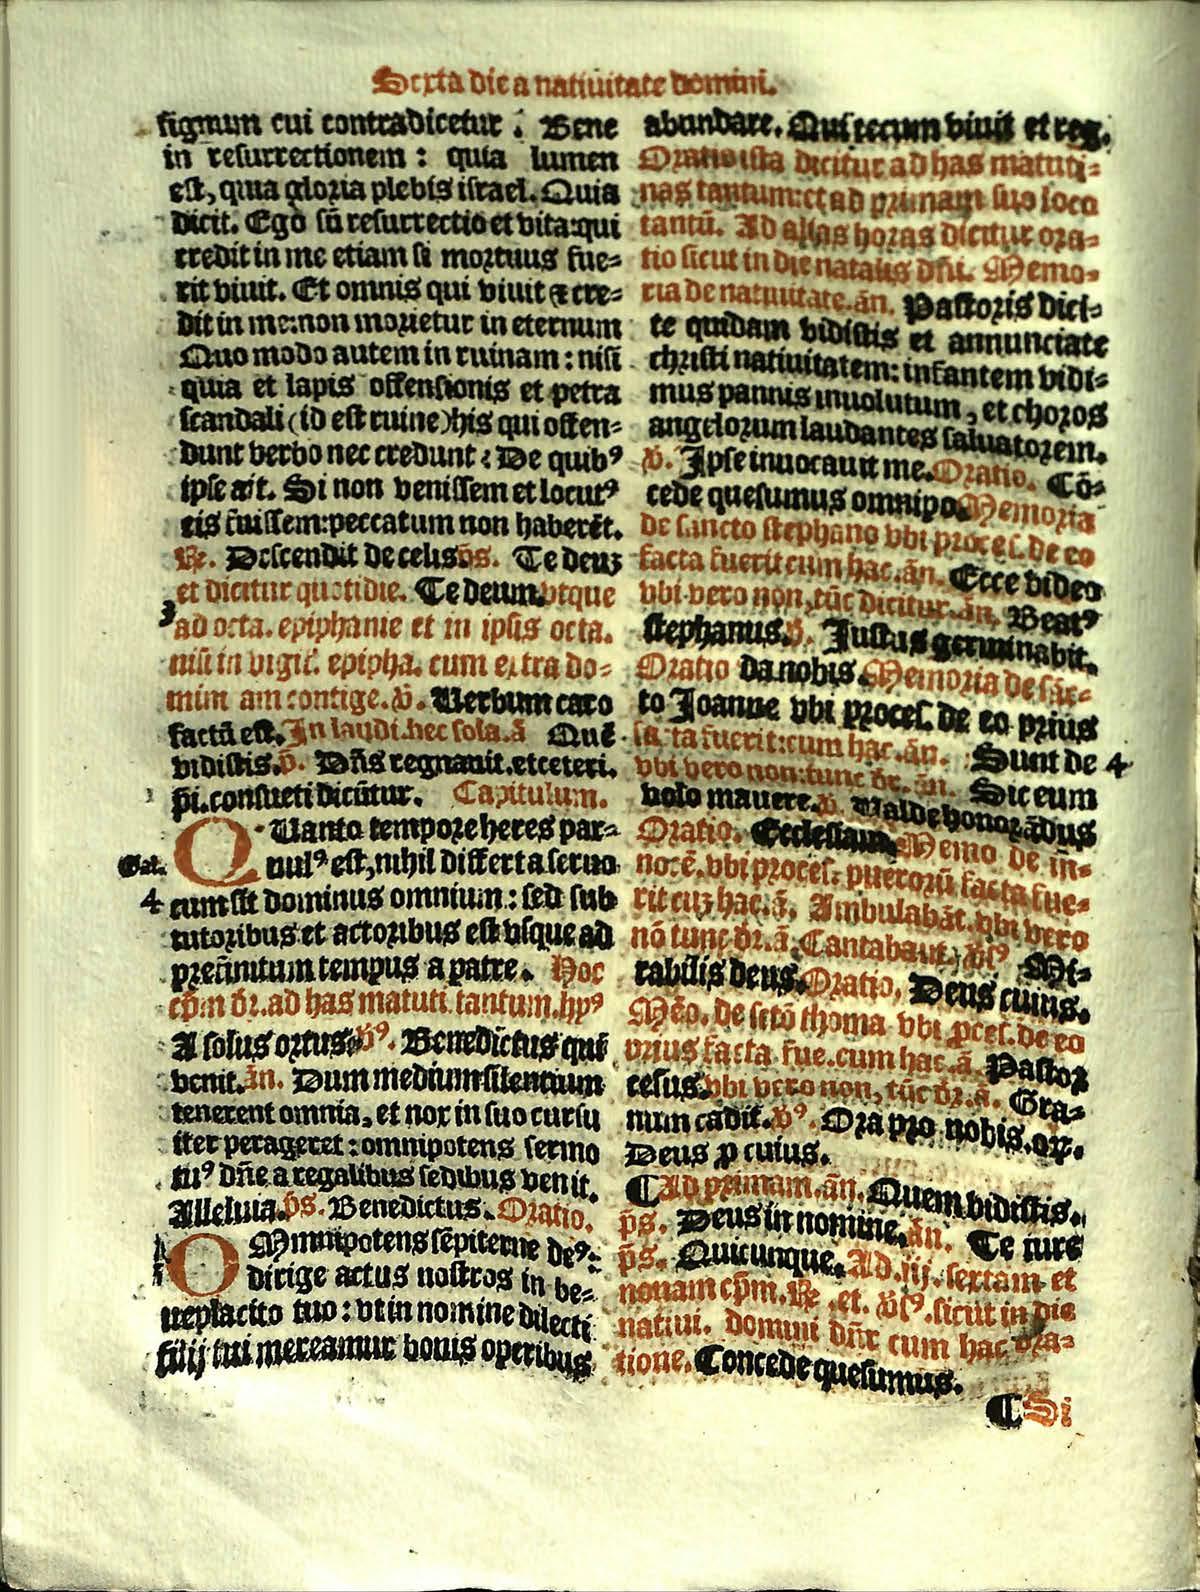 Sexta die a natiuitate domini.
signum cui contradicetur : Bene
in resurrectionem : quia lumen
est, quia gloria plebis israel. Quia
dicit. Ego sū resurrectio et vita:qui
credit in me etiam si mortuus fue=
rit viuit. Et omnis qui viuit & cre=
dit in me:non morietur in eternum
Quo modo autem in ruinam : nisi
quia et lapis offensionis et petra
scandali (id est ruine) his qui offen=
dunt verbo nec credunt : De quibꝰ
ipse ait. Si non venissem et locutꝰ
eis fuissem:peccatum non haberēt.
℟. Descendit de celis p̄s. Te deuꝫ
et dicitur quotidie. Te deum. vsque
3
ad octa. epiphanie et in ipsis octa.
nisi in vigil'. epipha. cum extra do=
mini am contige. v̄. Uerbum caro
factū est. In laudi. hec sola.ā Quē
vidistis. p̄. Dn̄s regnauit. et ceteri.
p̄i. consueti dicūtur. Capitulum.
QUanto tempore heres par=
Gal. uulꝰ est, nihil differt a seruo
4 cum sit dominus omnium : sed sub
tutoribus et actoribus est vsque ad
prefinitum tempus a patre. Hoc
cp̄m dr̄. ad has matuti. tantum. hyꝰ
A solus ortus v̄ꝰ. Benedictus qui
venit. ān. Dum medium silentium
tenerent omnia, et nox in suo cursu
iter perageret : omnipotens sermo
tuꝰ dn̄e a regalibus sedibus venit.
Alleluia. p̄s. Benedictus. Oratio.
OMnipotens sēpiterne deꝰ:
dirige actus nostros in be=
neplacito tuo : vt in nomine dilecti
filij tui mereamur bonis operibus
abundare. Qui tecum viuit et reg.
Oratio ista dicitur ad has matuti=
nas tantum:et ad primam suo loco
tantū. Ad alias horas dicitur ora=
tio sicut in die natalis dn̄i. Memo=
ria de natiuitate. ān. Pastoris dici=
te quidam vidistis et annunciate
christi natiuitatem: infantem vidi=
mus pannis inuolutum, et choros
angelorum laudantes saluatorem.
v̄. Ipse inuocauit me. Oratio. Cō=
cede quesumus omnipo. Memoria
de sancto stephano vbi proces. de eo
facta fuerit cum hac. ān. Ecce video
vbi vero non, tūc dicitur. ān. Beatꝰ
stephanus. v̄. Justus germinabit.
Oratio da nobis. Memoria de sāc=
to Joanne vbi proces. de eo prius
facta fuerit: cum hac. ān. Sunt de 4
vbi vero non: tunc dr̄. ān. Sic eum
volo manere. v̄. Ualde honorādus
Oratio. Ecclesiam. Memo de in=
nocē. vbi proces. puerorū facta fue=
rit cuꝫ hac.ā. Ambulabāt. vbi vero
nō tunc dr̄.ā. Cantabant. v̄sꝰ Mi=
rabilis deus. Oratio. Deus cuius.
Mēo. de sctō thoma vbi ꝓces. de eo
prius facta fue. cum hac.ā. Pastor
cesus. vbi vero non, tūc dr̄.ā. Gra=
num cadit. v̄ꝰ. Ora pro nobis. or.
Deus ꝓ cuius.
¶ Ad primam. ān. Quem vidistis.
p̄s. Deus in nomine. ān. Te iure
p̄s. Quicunque. Ad .iij. sextam et
nonam cp̄m. ℟. et. v̄sꝰ. sicut in die
natiui. domini dn̄r cum hac ora=
tione. Concede quesumus.
¶ Si